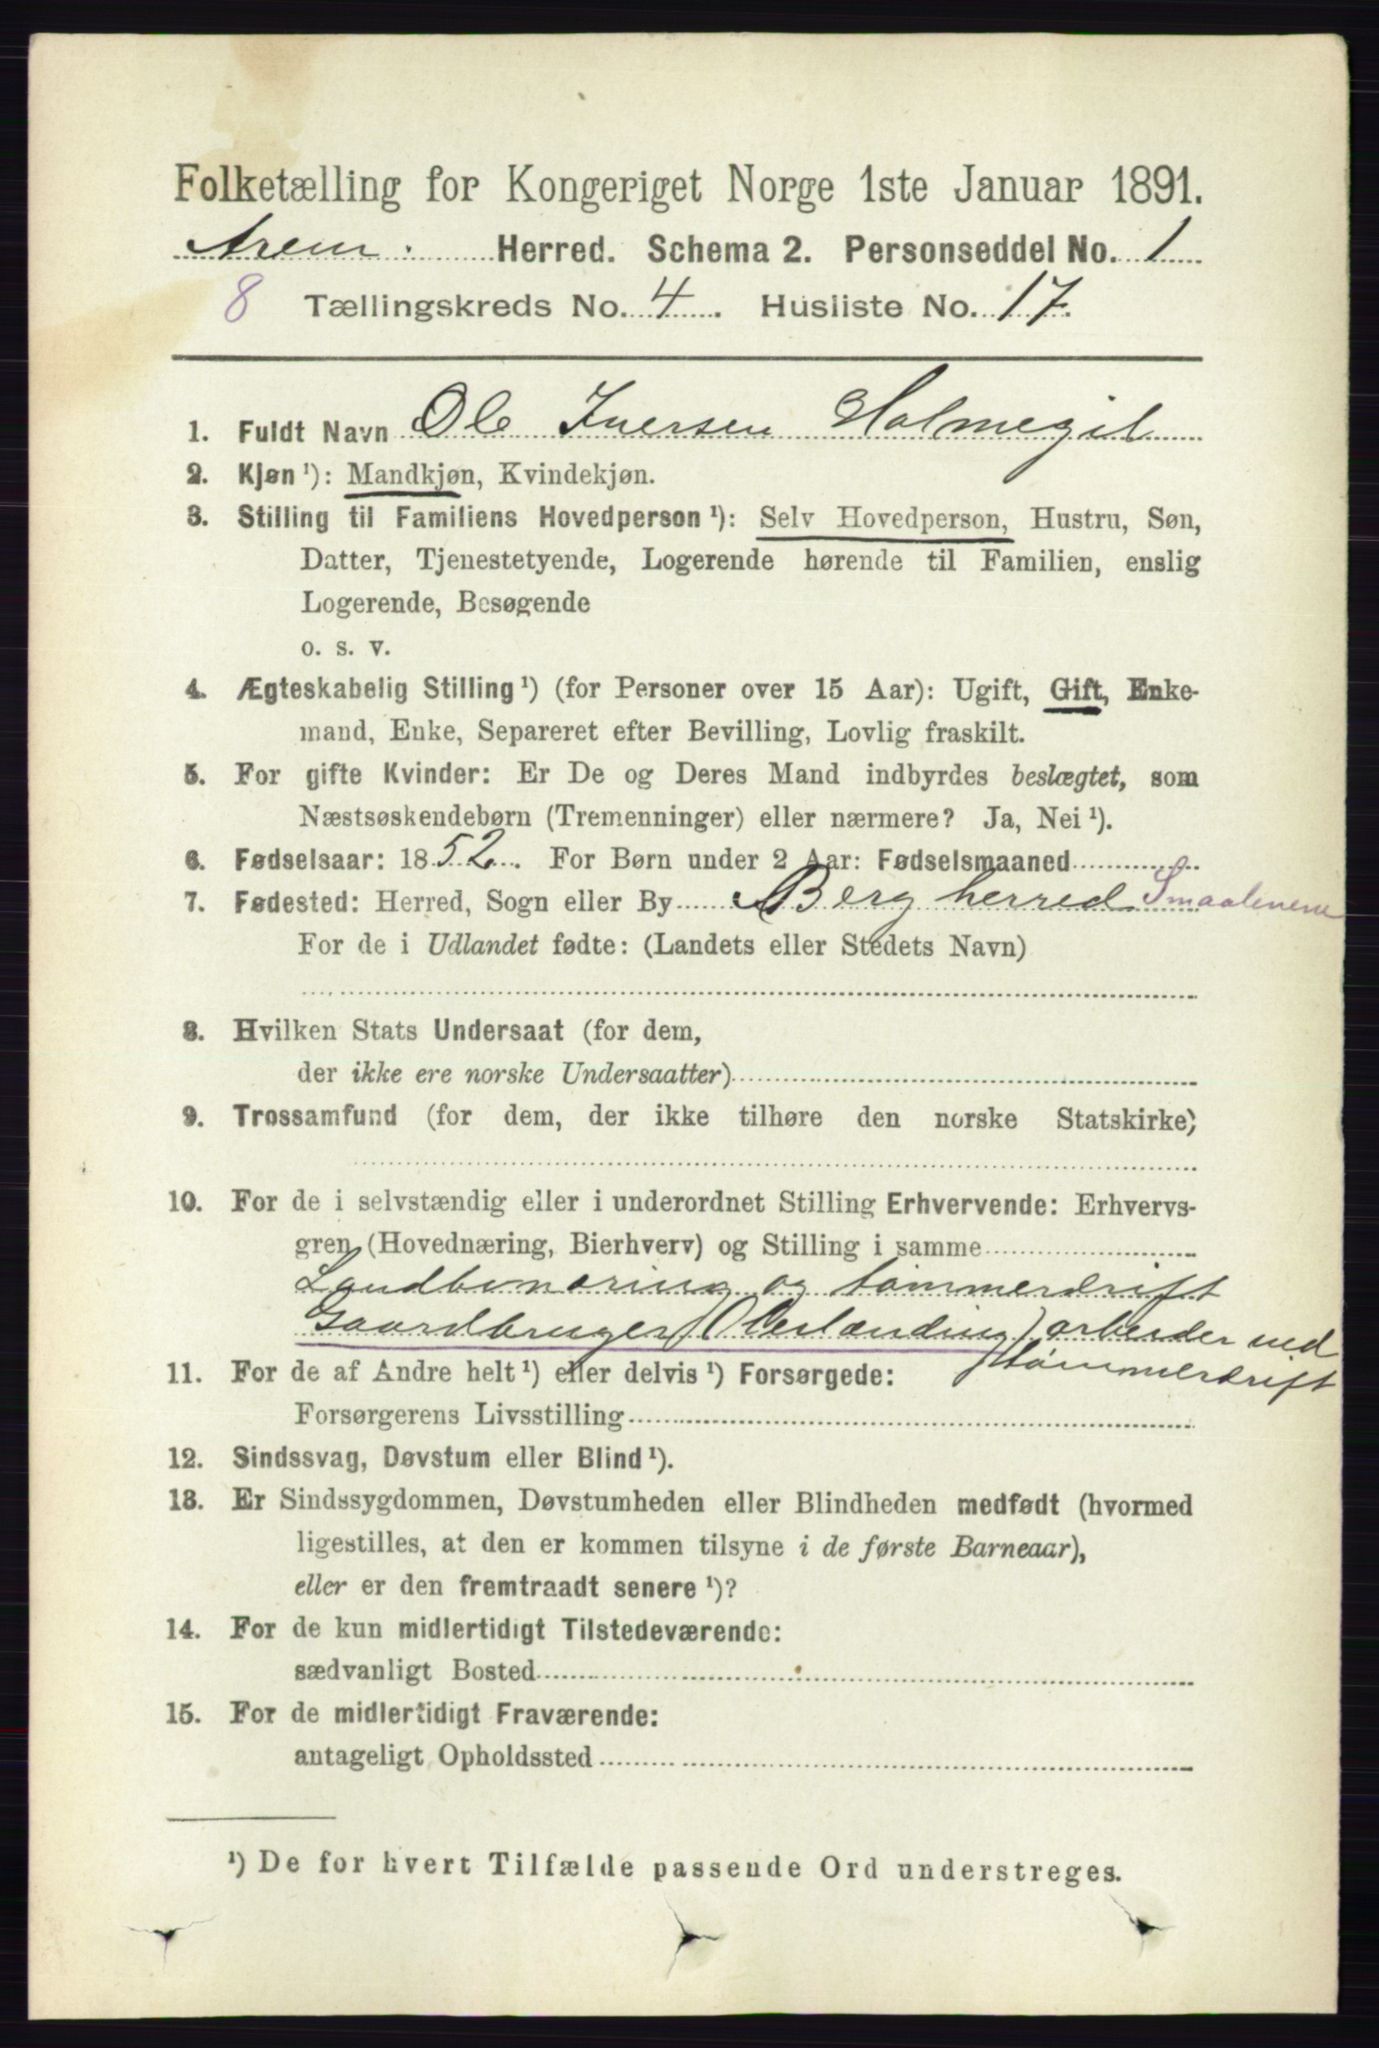 Folketælling for Kongeriget Norge 1ste Januar 1891.
Arem: Herred. Schema 2. Personseddel No. 1
8 Tællingskreds No. 4. Husliste No. 17.
1. Fuldt Navn Ole Iversen Holmegil
2. Kjøn ¹): Mandkjøn, Kvindekjøn.
3. Stilling til Familiens Hovedperson ¹): Selv Hovedperson, Hustru, Søn,
Datter, Tjenestetyende, Logerende hørende til Familien, enslig
Logerende, Besøgende
o. s. v.
4. Ægteskabelig Stilling ¹) (for Personer over 15 Aar): Ugift, Gift, Enke-
mand, Enke, Separeret efter Bevilling, Lovlig fraskilt.
5. For gifte Kvinder: Er De og Deres Mand indbyrdes beslægtet, som
Næstsøskendebørn (Tremenninger) eller nærmere? Ja, Nei ¹).
6. Fødselsaar: 1852. For Børn under 2 Aar: Fødselsmaaned
7. Fødested: Herred, Sogn eller By Berg herred Smaalenene
For de i Udlandet fødte: (Landets eller Stedets Navn)
8. Hvilken Stats Undersaat (for dem,
der ikke ere norske Undersaatter)
9. Trossamfund (for dem, der ikke tilhøre den norske Statskirke)
10. For de i selvstændig eller i underordnet Stilling Erhvervende: Erhvervs-
gren (Hovednæring, Bierhverv) og Stilling i samme
Landbonæring og tømmerdrift
Gaardbruger arbeider ved
tømmerdrift
11. For de af Andre helt ¹) eller delvis ¹) Forsørgede:
Forsørgerens Livsstilling
12. Sindssvag, Døvstum eller Blind ¹).
13. Er Sindssygdommen, Døvstumheden eller Blindheden medfødt (hvormed
ligestilles, at den er kommen tilsyne i de første Barneaar),
eller er den fremtraadt senere ¹)?
14. For de kun midlertidigt Tilstedeværende:
sædvanligt Bosted
15. For de midlertidigt Fraværende:
antageligt Opholdssted
¹) De for hvert Tilfælde passende Ord understreges.